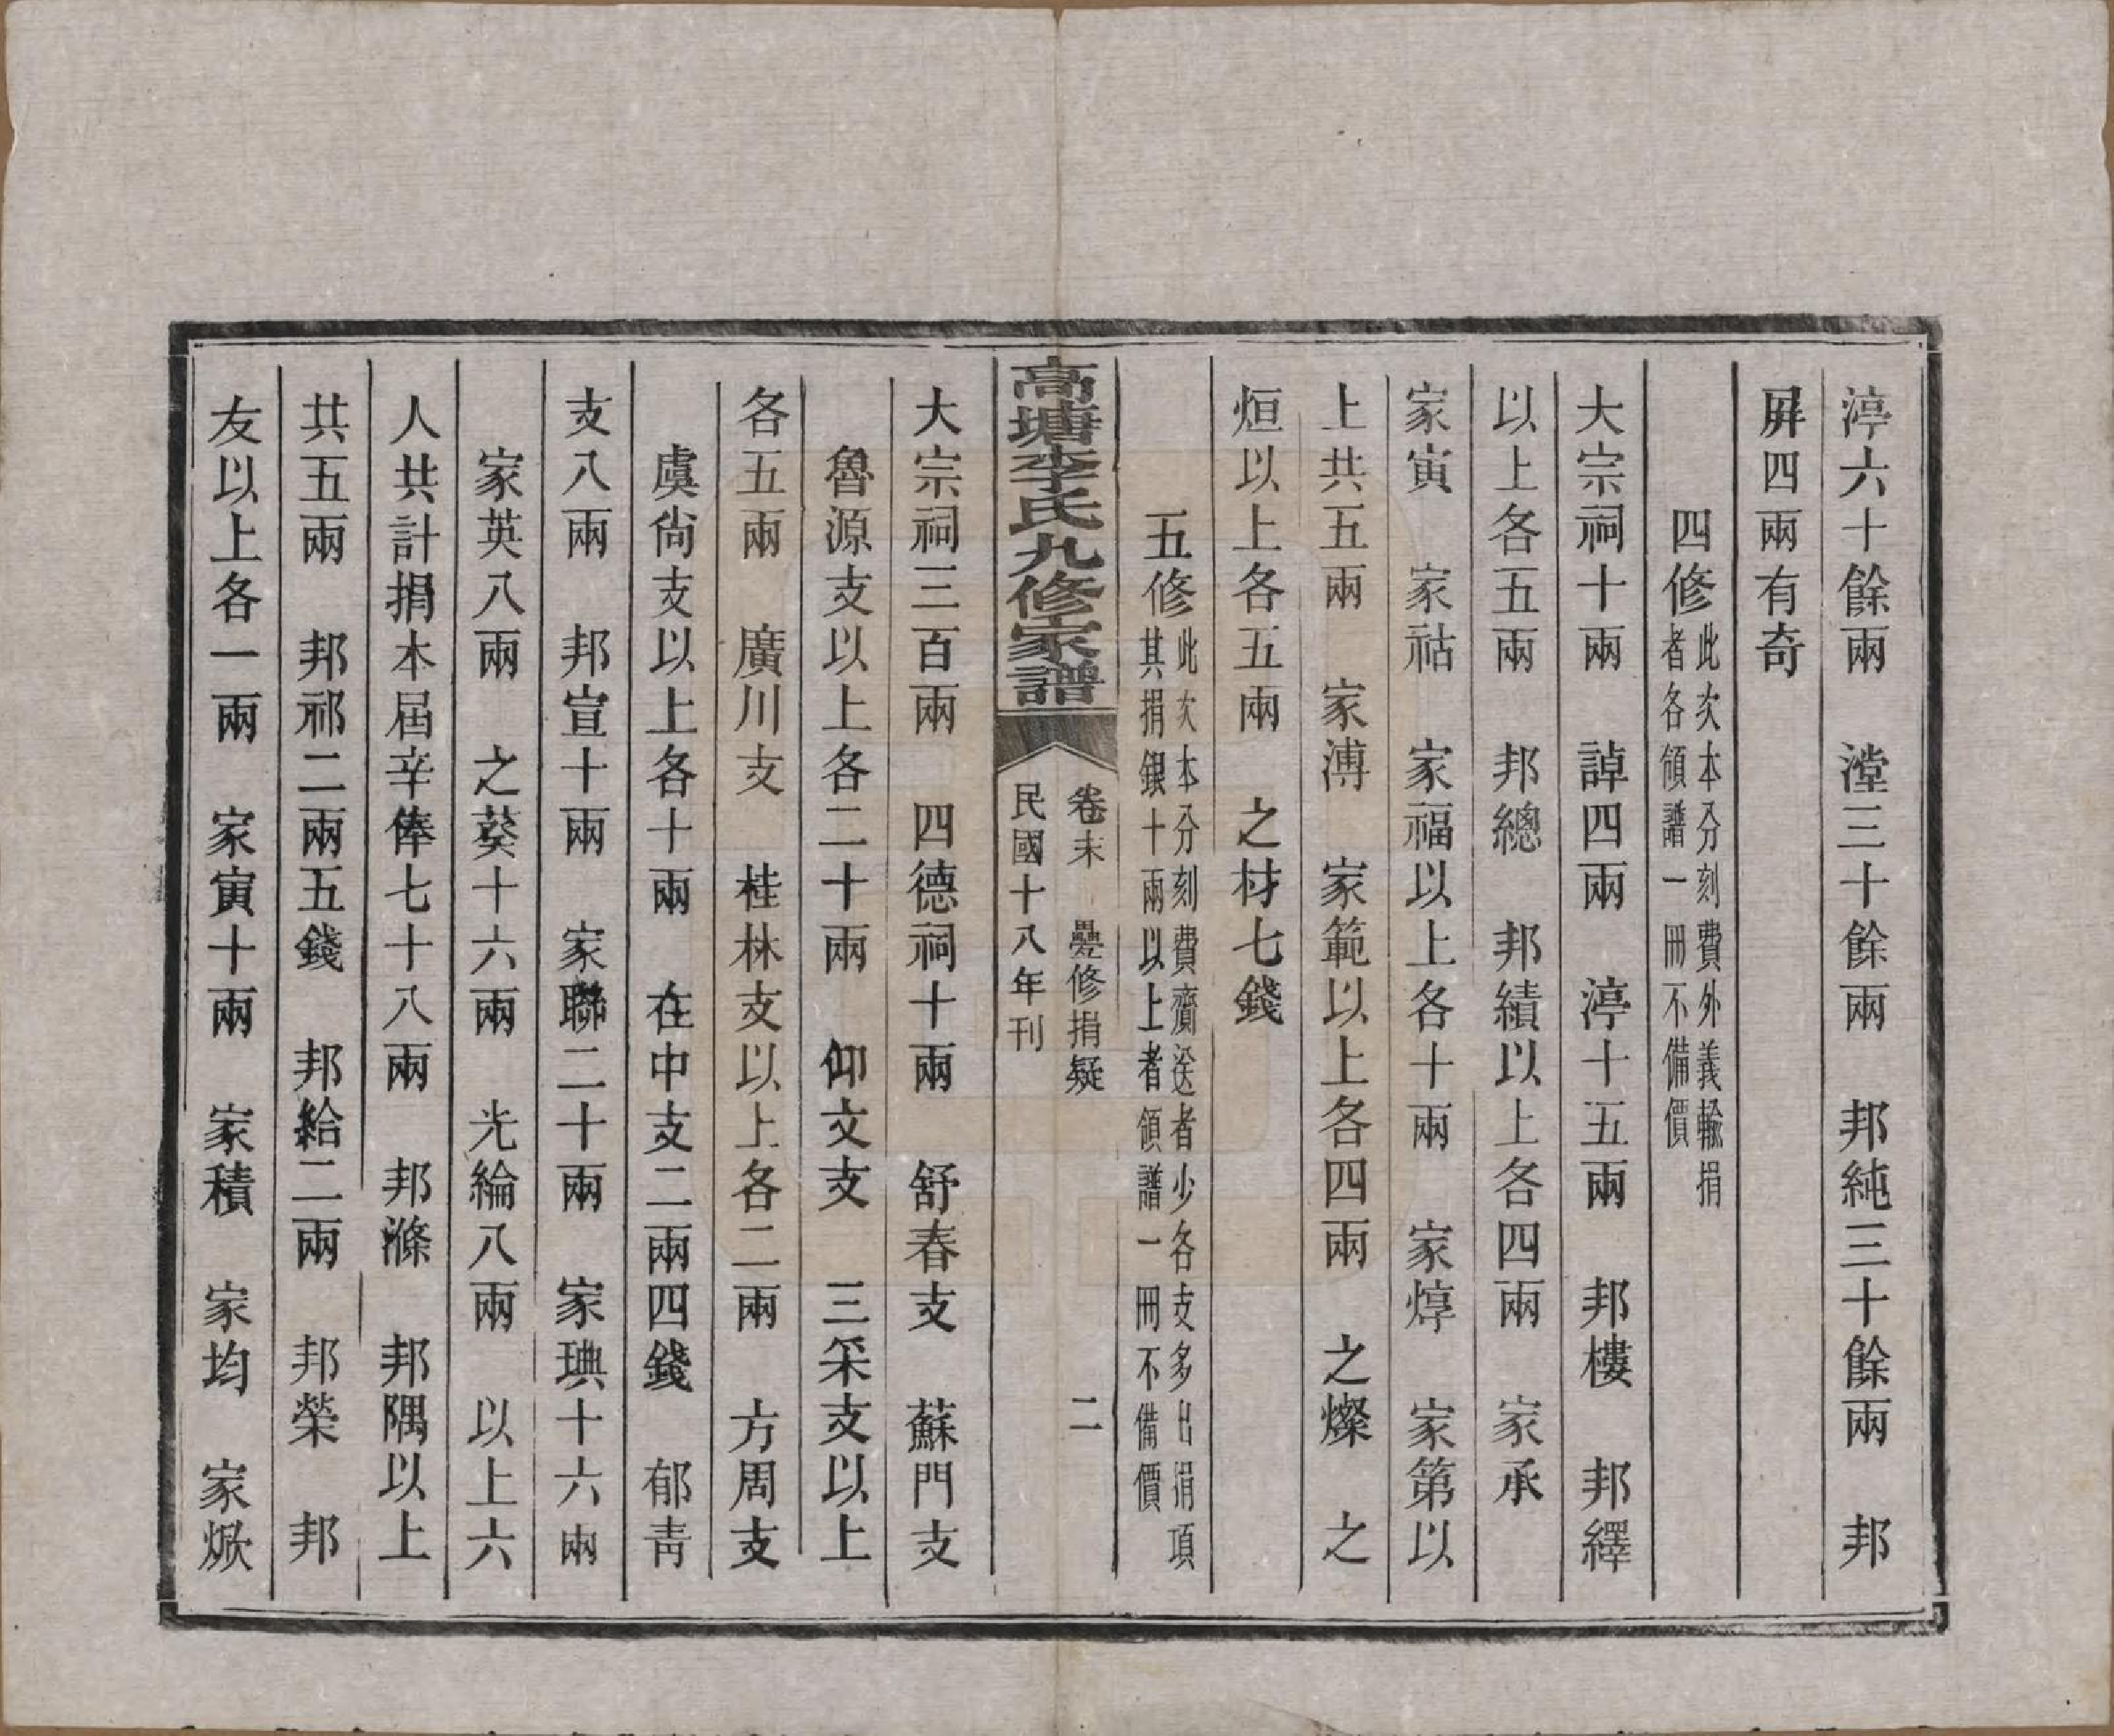 渟六十餘兩　漟三十餘兩　邦純三十餘兩　邦
屏四兩有奇
四修此次本分刻費外義輸捐者各領譜一冊不備價
大宗祠十兩　諄四兩　渟十五兩　邦樓　邦繹
以上各五兩　邦總　邦績以上各四兩　家承
家寅　家祜　家福以上各十兩　家焞　家第以
上共五兩　家溥　家範以上各四兩　之燦　之
烜以上各五兩　之材七錢
五修此次本分刻費齎送者少各支多出捐項其捐銀十兩以上者領譜一冊不備價
高塘李氏九修家譜　卷末　疊修捐疑　二
民國十八年刊
大宗祠三百兩　四德祠十兩　舒春支　蘇門支
魯源支以上各二十兩　仰文支　三采支以上
各五兩　廣川支　桂林支以上各二兩　方周支
虞尙支以上各十兩　在中支二兩四錢　郁靑
支八兩　邦宣十兩　家聯二十兩　家琠十六兩
家英八兩　之葵十六兩　光綸八兩　以上六
人共計捐本屆辛俸七十八兩　邦滌　邦隅以上
共五兩　邦祁二兩五錢　邦給二兩　邦榮　邦
友以上各一兩　家寅十兩　家積　家均　家焮